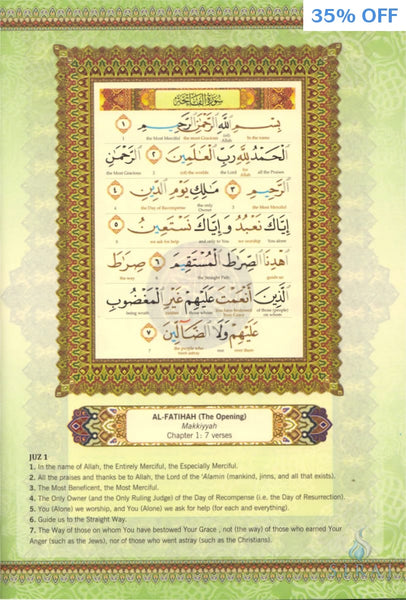 35% OFF
سُورَةُ الْفَاتِحَةِ
بِسْمِ اللَّهِ الرَّحْمَٰنِ الرَّحِيمِ ١
1 the Most Merciful the most Gracious Allah In the name
الْحَمْدُ لِلَّهِ رَبِّ الْعَالَمِينَ ٢ الرَّحْمَٰنِ
the Most Gracious 2 the Lord Allah all the Praises
الرَّحِيمِ ٣ مَالِكِ يَوْمِ الدِّينِ ٤
4 the Day of Recompense the only Owner 3 the Most Merciful
إِيَّاكَ نَعْبُدُ وَإِيَّاكَ نَسْتَعِينُ ٥
5 we ask for help and only to You we worship You alone
اهْدِنَا الصِّرَاطَ الْمُسْتَقِيمَ ٦ صِرَاطَ
the way 6 the Straight Path guide us
الَّذِينَ أَنْعَمْتَ عَلَيْهِمْ غَيْرِ الْمَغْضُوبِ
being wrath those whom You have bestowed Your Grace of those (people) on whom
عَلَيْهِمْ وَلَا الضَّالِّينَ ٧
7 the people who went astray over them
AL-FATIHAH (The Opening)
Makkiyyah
Chapter 1: 7 verses
JUZ 1
1. In the name of Allah, the Entirely Merciful, the Especially Merciful.
2. All the praises and thanks be to Allah, the Lord of the 'Alamin (mankind, jinns, and all that exists).
3. The Most Beneficent, the Most Merciful.
4. The Only Owner (and the Only Ruling Judge) of the Day of Recompense (i.e. the Day of Resurrection).
5. You (Alone) we worship, and You (Alone) we ask for help (for each and everything).
6. Guide us to the Straight Way.
7. The Way of those on whom You have bestowed Your Grace , not (the way) of those who earned Your
Anger (such as the Jews), nor of those who went astray (such as the Christians).